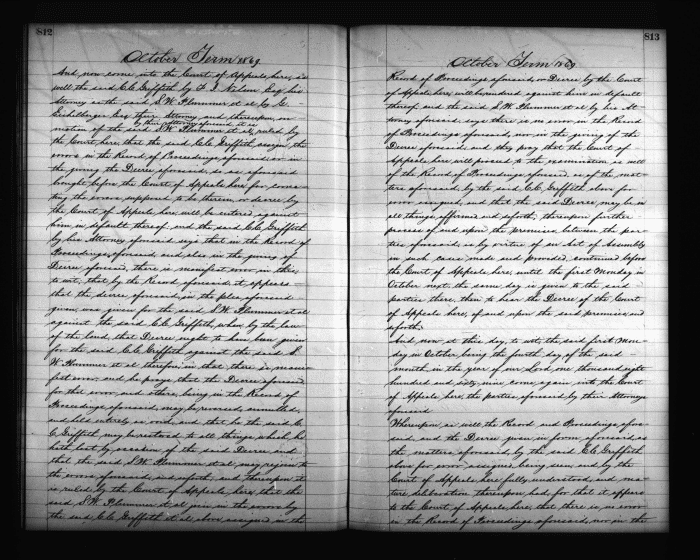 812
October Term 1869
And, now come into the Court of Appeals, here, as
well the said C.C. Griffith by F. S. Nelson Esq. his
Attorney as the said S. W. Plummer et al by C.
their Attorney and thereupon, on
by their Attorney aforesaid it is
motion of the said S. W. Plummer et al, ruled by
the Court here, that the said C.C. Griffith assign the
errors in the Record of Proceedings, aforesaid, or in
the giving the Decree aforesaid, so as aforesaid
brought before the Court of Appeals, here for correc-
ting the errors supposed to be therein, or decree by
the Court of Appeals here, will be entered against
him in default thereof and the said C.C. Griffith
by his Attorney aforesaid says that in the Record of
Proceedings, aforesaid and also in the giving of
Decree aforesaid, there is manifest error in this,
to wit, that by the Record aforesaid, it appears
that the decree aforesaid, in the plea aforesaid
given, was given for the said S. W. Plummer et al
against the said C.C. Griffith, when by the law
of the land, that Decree ought to have been given
for the said C.C. Griffith against the said S.
W. Plummer et al therefore in that there is mani-
fest error, and he prays that the Decree aforesaid
for that error, and others, being in the Record of
Proceedings, aforesaid, may be reversed, annulled,
and held entirely as void, and that he the said C.
C. Griffith may be restored to all things, which he
hath lost by occasion of the said Decree and
that the said S. W. Plummer et al, may rejoin to
the errors aforesaid, and soforth, and thereupon it
is ruled by the Court of Appeals, here, that the
said S. W. Plummer et al join in the errors by
the said C.C. Griffith et al, above assigned in the
813
October Term 1869
Record of Proceedings aforesaid, or Decree by the Court
of Appeals, here, will be rendered against him in default
thereof, and the said S. W. Plummer et al by his At-
torney aforesaid says there is no error in the Record
of Proceedings aforesaid, nor in the giving of the
Decree aforesaid, and they pray that the Court of
Appeals here, will proceed to the examination as well
of the Record of Proceedings aforesaid, as of the mat-
ters aforesaid, by the said C.C. Griffith above for
error assigned, and that the said Decree, may be in
all things affirmed and soforth; thereupon further
process of and upon the premises, between the par-
ties aforesaid, is by virtue of an Act of Assembly
in such cases made and provided, continued before
the Court of Appeals here, until the first Monday in
October next the same day is given to the said
parties there, then to hear the Decree of the Court
of Appeals here, of and upon the said premises, and
soforth.
And now at this day, to wit, the said first Mon-
day in October, being the fourth day, of the said
month, in the year of our Lord, one thousand eight
hundred and sixty nine come again into the Court
of Appeals, here, the parties aforesaid by their Attorneys
aforesaid
Whereupon, as well the Record and Proceedings, afore-
said and the Decree given in form aforesaid as
the matters aforesaid, by the said C.C. Griffith
above for error assigned, being seen, and by the
Court of Appeals here fully, understood, and ma-
ture deliberation thereupon had, for that it appears
to the Court of Appeals, here, that there is, no error
in the Record of Proceedings aforesaid, nor in the